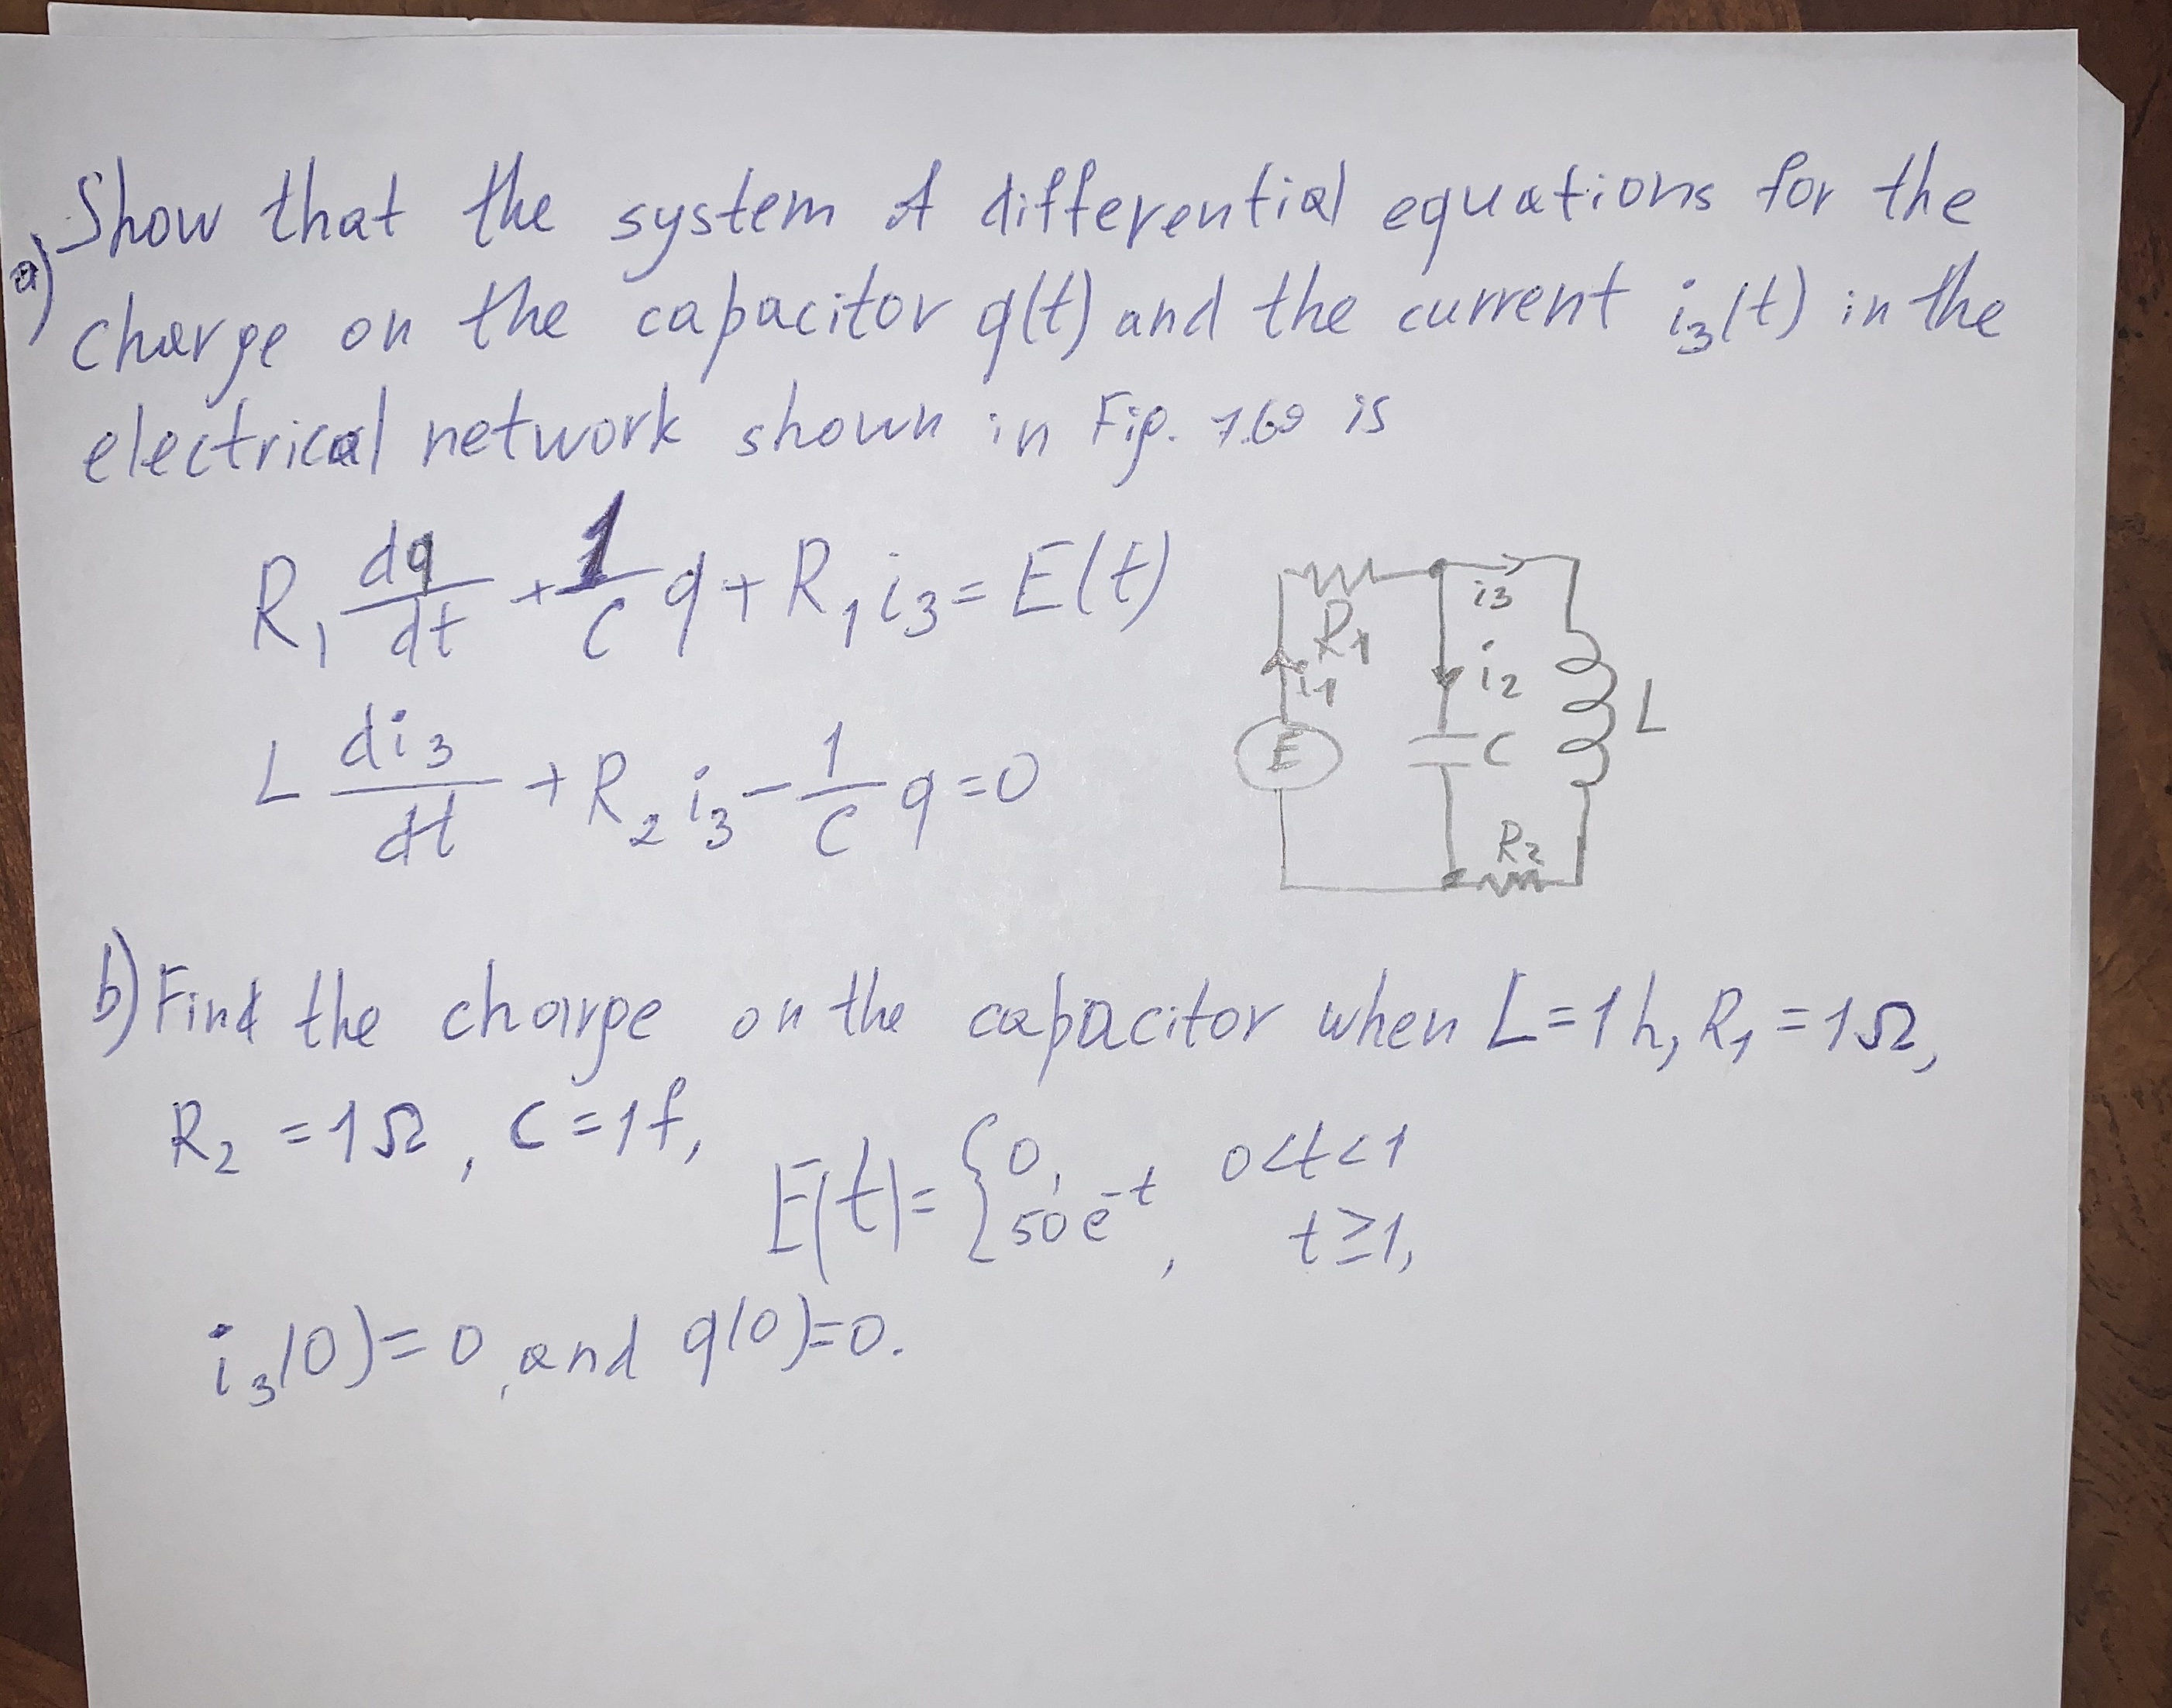 a) Show that the system of differential equations for the
charge on the capacitor q(t) and the current i₃(t) in the
electrical network shown in Fig. 7.69 is
R₁ dq/dt + 1/C q + R₁ i₃ = E(t)
L di₃/dt + R₂ i₃ - 1/C q = 0
R₁
i₃
i₁
i₂
E
C
L
R₂
b) Find the charge on the capacitor when L = 1 h, R₁ = 1Ω,
R₂ = 1Ω, C = 1f,
E(t) = { 0, 0<t<1
50e^-t, t≥1,
i₃(0) = 0, and q(0) = 0.